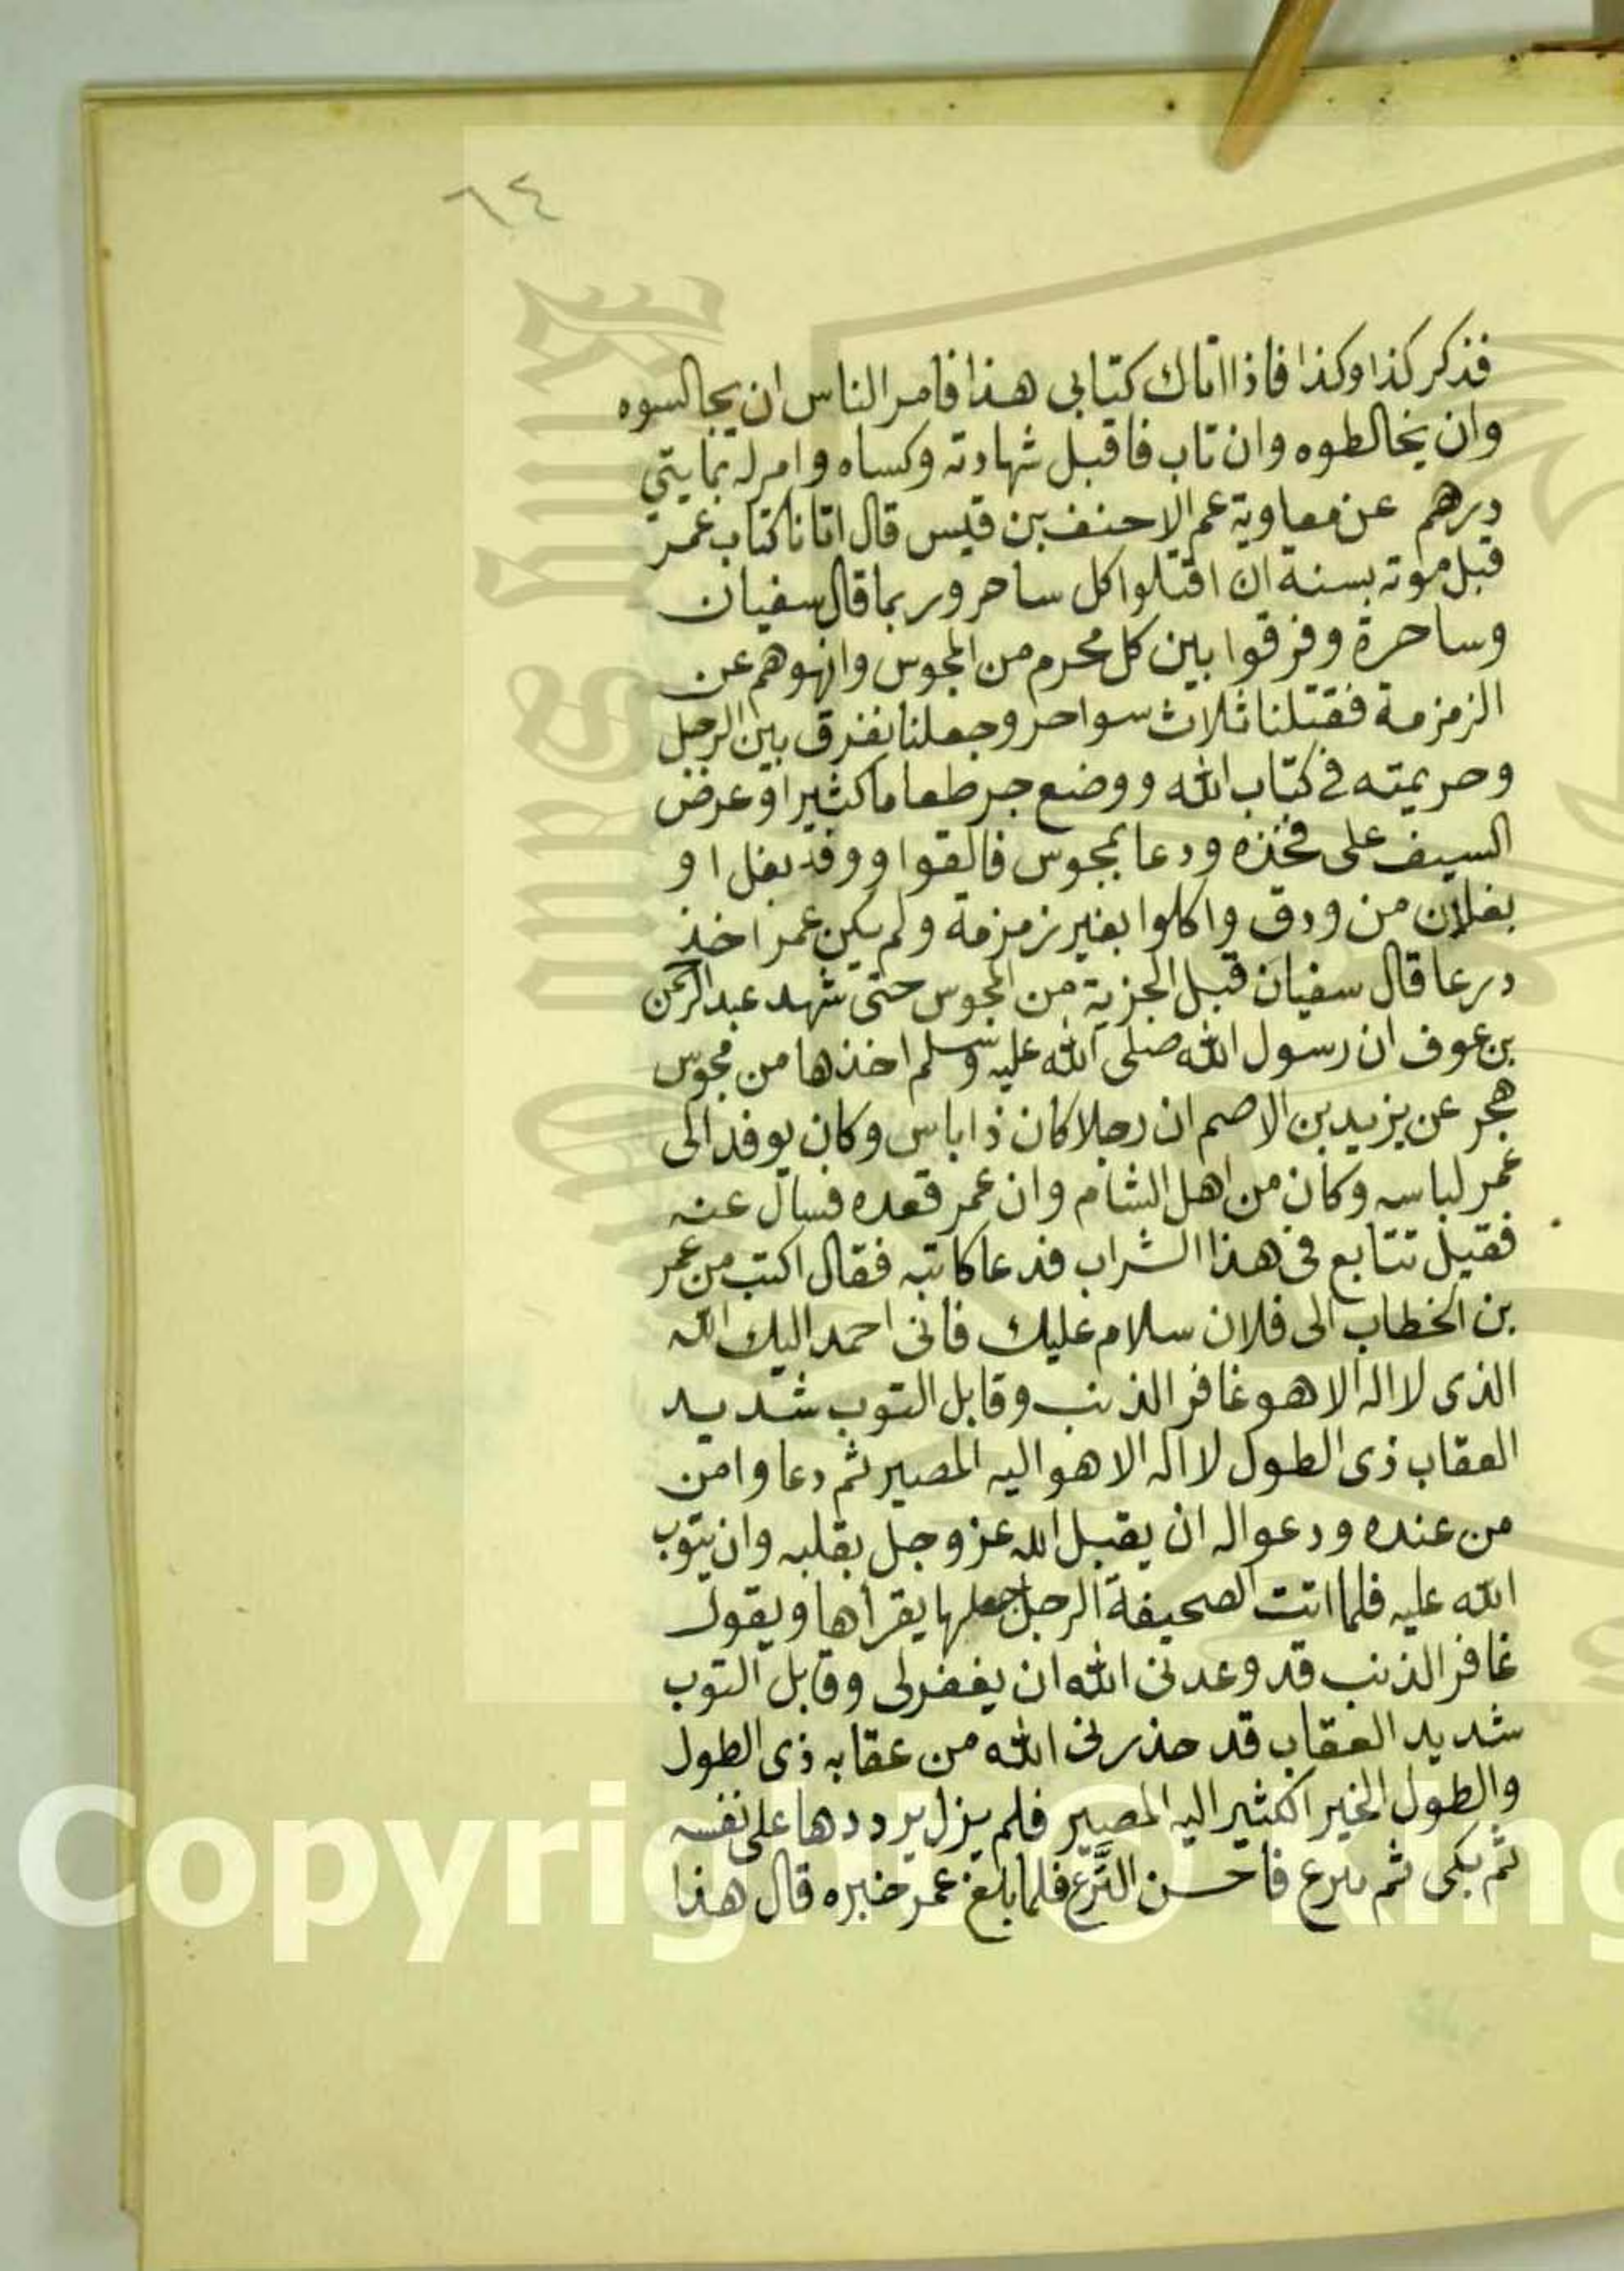 ٦٤
فذكر كذا وكذا فاذا اتاك كتابى هذا فامر الناس ان يجالسوه
وان يخالطوه وان تاب فاقبل شهادته وكساه وامر له بمايتي
درهم عن معاوية عم الاحنف بن قيس قال اتانا كتاب عمر
قبل موته بسنة ان اقتلوا كل ساحر وربما قال سفيان
وساحرة وفرقوا بين كل محرم من المجوس وانهوهم عن
الزمزمة فقتلنا ثلاث سواحر وجعلنا نفرق بين الرجل
وحريمته في كتاب الله ووضع جر طعاما كثيرا وعرض
السيف على فخذه ودعا بمجوس فالقوا ووقد بغل او
بغلان من ودق واكلوا بغير زمزمة ولم يكن عمر اخذ
درعا قال سفيان قبل الجزية من المجوس حتى شهد عبد الرحمن
بن عوف ان رسول الله صلى الله عليه وسلم اخذها من مجوس
هجر عن يزيد بن الاصم ان رجلا كان ذا باس وكان يوفد الى
عمر لباسه وكان من اهل الشام وان عمر قعده فسال عنه
فقيل تتابع فى هذا الشراب فدعا كاتبه فقال اكتب من عمر
بن الخطاب الى فلان سلام عليك فانى احمد اليك الله
الذى لا اله الا هو غافر الذنب وقابل التوب شديد
العقاب ذى الطول لا اله الا هو اليه المصير ثم دعا وامن
من عنده ودعوا له ان يقبل الله عز وجل بقلبه وان يتوب
الله عليه فلما اتت الصحيفة الرجل جعلها يقرأها ويقول
غافر الذنب قد وعدنى الله ان يغفرلى وقابل التوب
شديد العقاب قد حذرنى الله من عقابه ذى الطول
والطول الخير الكثير اليه المصير فلم يزل يرددها على نفسه
ثم بكى ثم نزع فاحسن النزع فلما بلغ عمر خبره قال هذا
Copyright © King